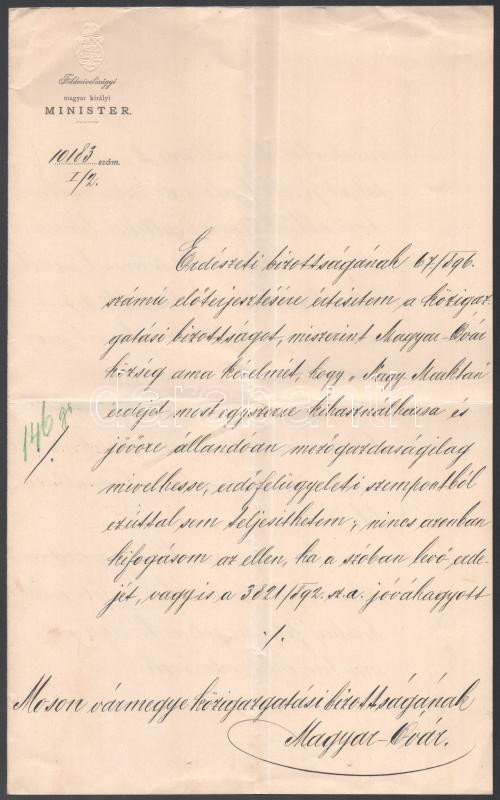 Földmivelésügyi
magyar királyi
MINISTER.
10183 szám.
I/2.
Erdészeti bizottságának 67/896.
számú előterjesztésére értesitem a közigaz-
gatási bizottságot, miszerint Magyar-Óvár
község ama kérelmét, hogy „Nagy
erdejét most egyszerre kihasználhassa és
jövőre állandóan mezőgazdaságilag
mivelhesse, erdőfelügyeleti szempontból
ezúttal sem teljesithetem; nincs azonban
kifogásom az ellen, ha a szóban levő erde-
jét, vagyis a 3821/892. sz. a. jóváhagyott
./.
146
/.
Moson vármegye közigazgatási bizottságának
Magyar-Óvár.
darabanth